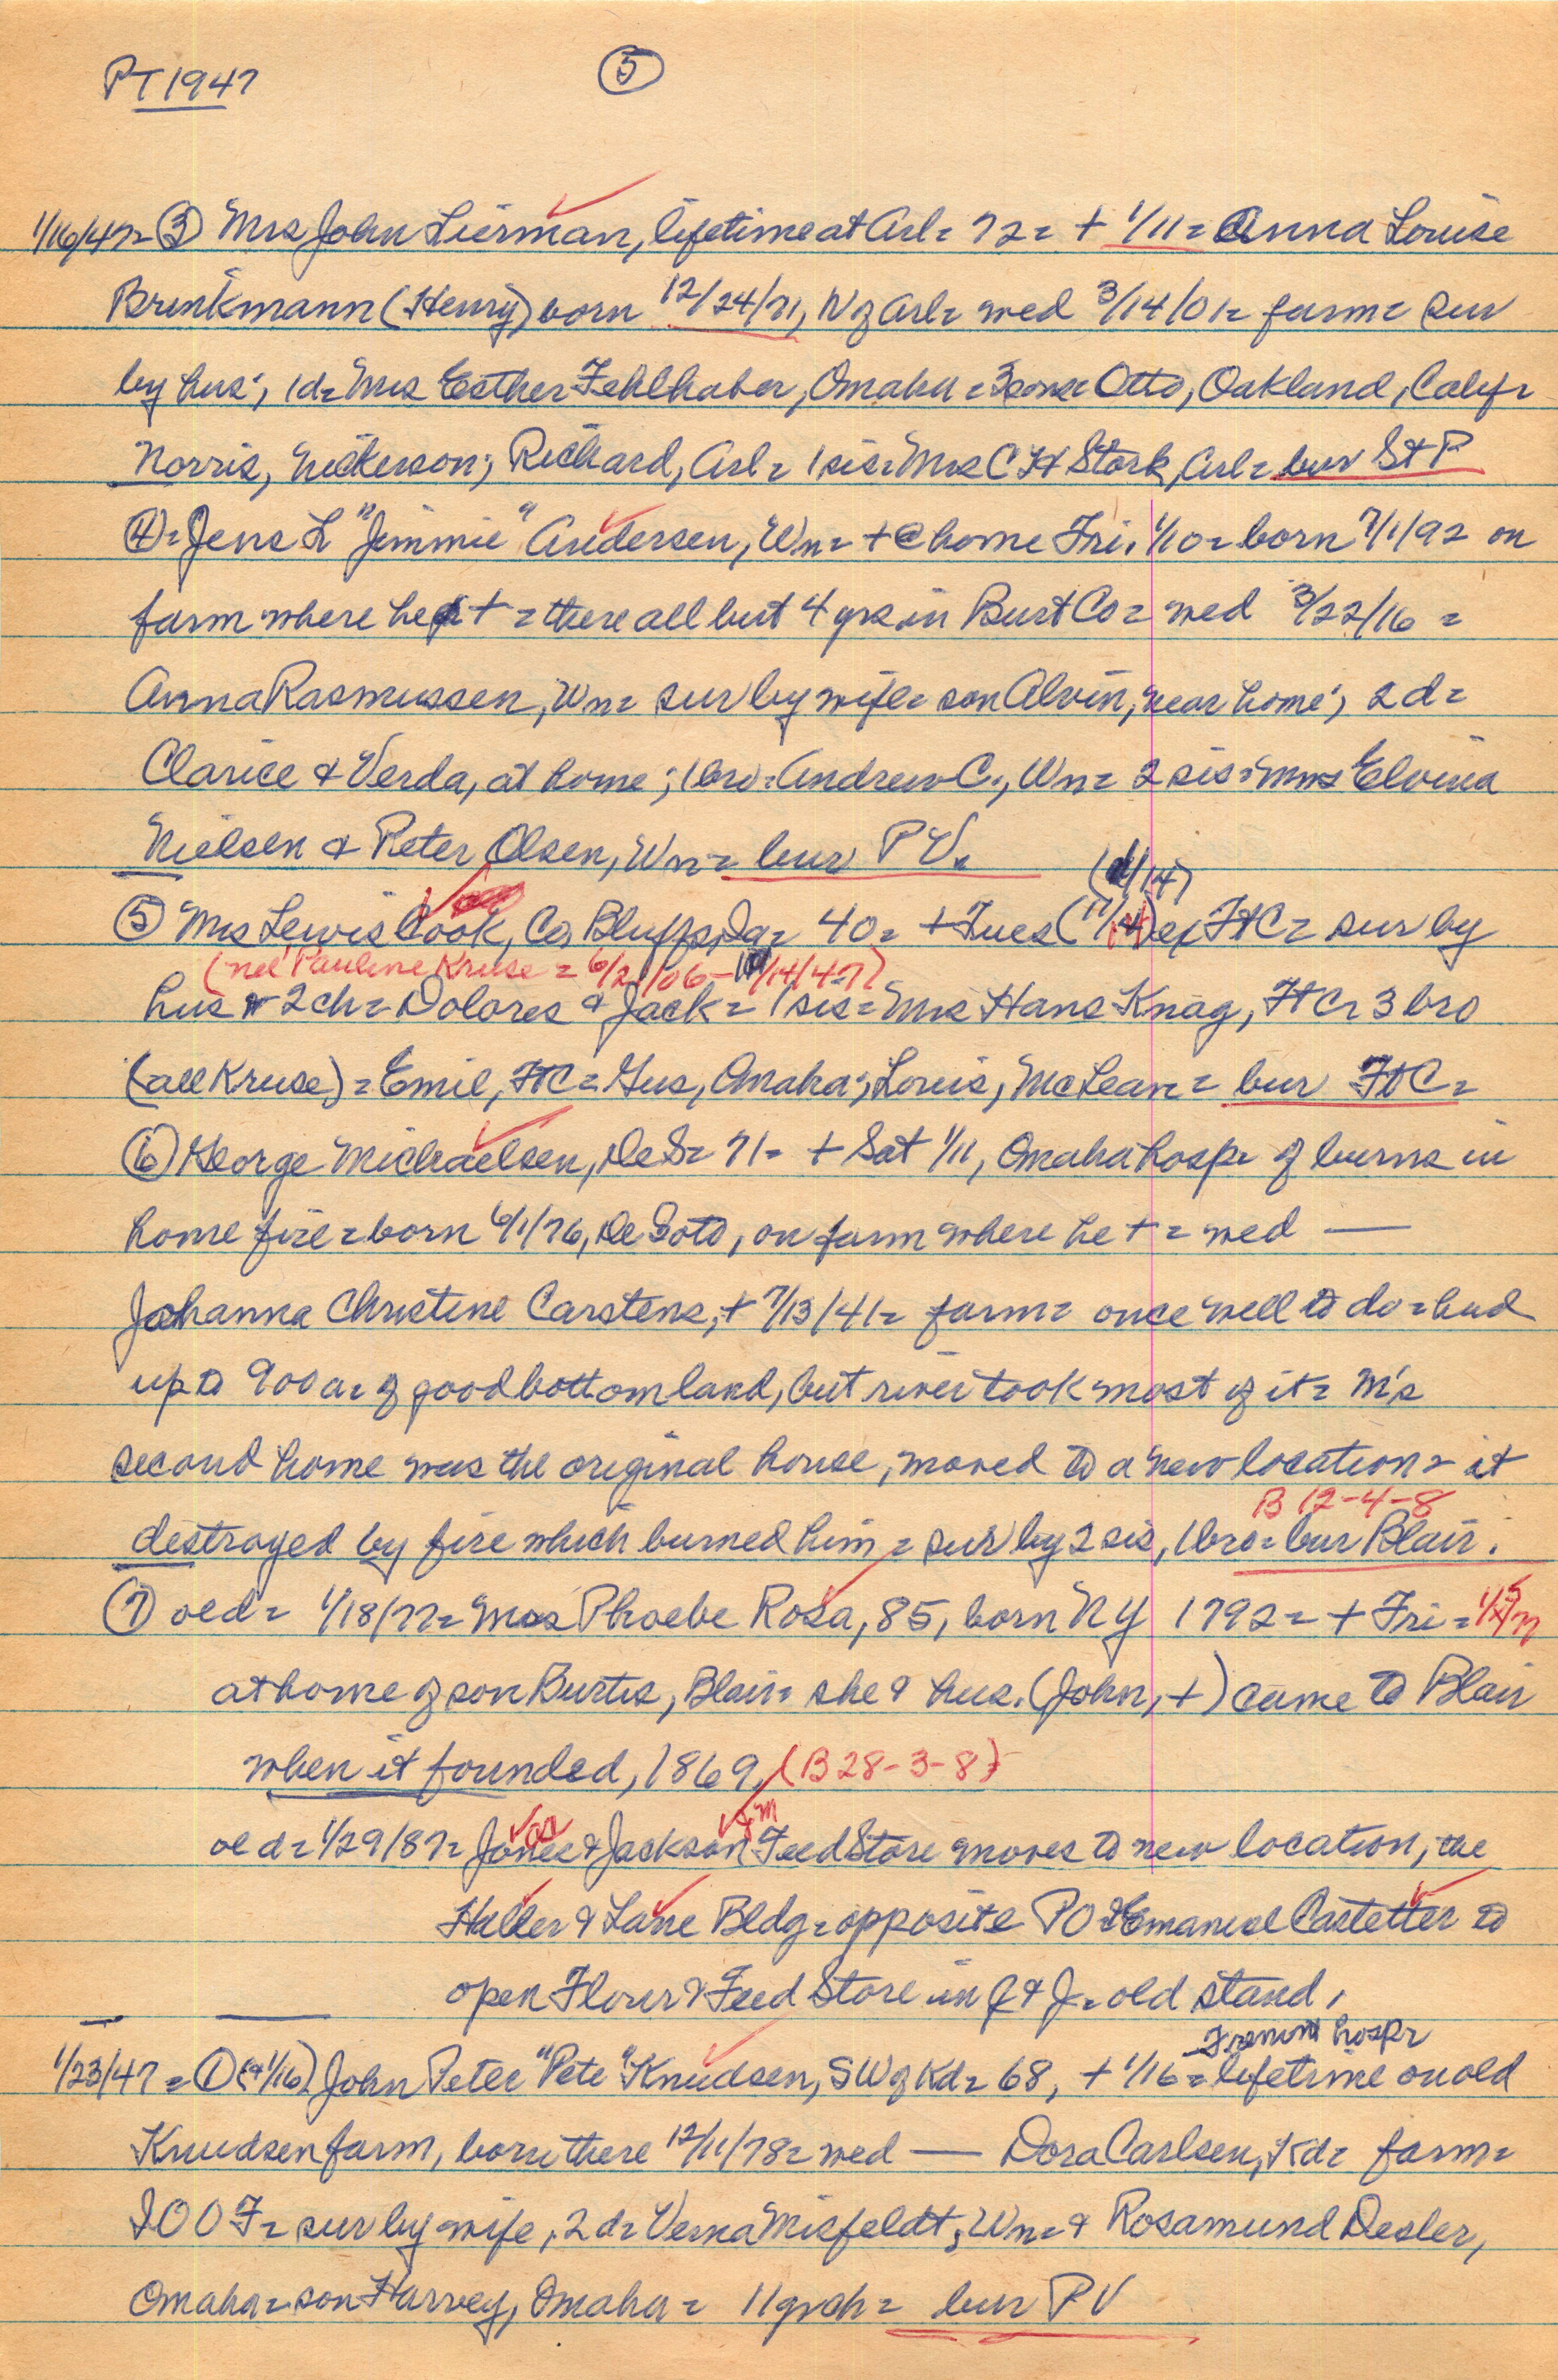 PT 1947
5
1/16/47= ③ Mrs John Lierman, lifetime at Arl= 72= + 1/11= Anna Louise
Brinkmann (Henry) born 12/24/71, N of Arl= wed 3/14/01= farm= sur
by hus; 1d= Mrs Esther Fehlhaber, Omaha = 3 sons= Otto, Oakland, Calif=
Norris, Nickerson; Richard, Arl= 1 sis= Mrs C H Stork, Arl= bur St P
④= Jens L "Jimmie" Andersen, Wn= + @ home Fri. 1/10= born 7/1/92 on
farm where he + = there all but 4 yrs in Burt Co= wed 3/22/16 =
Anna Rasmussen, Wn= sur by wife= son Alvin, near home; 2 d=
Clarice & Verda, at home; 1 bro= Andrew C., Wn= 2 sis= Mms Elvina
Nielsen & Peter Olsen, Wn= bur PV.
(1/14)
⑤ Mrs Lewis Cook, Co Bluffs, Ia= 40= + Tues (1/14) ex FtC= sur by
(neé Pauline Kruse = 6/21/06 - 1/14/47)
hus & 2 ch= Dolores & Jack= 1 sis= Mrs Hans Knag, FtC= 3 bro
(all Kruse) = Emil, FtC= Gus, Omaha; Louis, McLean= bur FtC=
⑥ George Michaelsen, DeS= 71= + Sat 1/11, Omaha hosp= of burns in
home fire= born 6/1/76, DeSoto, on farm where he + = wed —
Johanna Christine Carstens, + 7/13/41= farm= once well to do= had
up to 900 a= of good bottom land, but river took most of it= M's
second home was the original house, moved to a new location= it
B 12-4-8
destroyed by fire which burned him = sur by 2 sis, 1 bro= bur Blair.
⑦ old= 1/18/77= Mrs Phoebe Rosa, 85, born NY 1792= + Fri=
at home of son Burtis, Blair= she & hus. (John, +) came to Blair
when it founded, 1869. (B 28-3-8)
old= 1/29/87= Jones & Jackson Feed Store moves to new location, the
Haller & Lane Bldg= opposite PO= Emanuel Castetter to
open Flour & Feed Store in J & J= old stand.
Fremont hosp=
1/23/47 = ① (+1/16) John Peter "Pete" Knudsen, SW of Kd= 68, + 1/16= lifetime on old
Knudsen farm, born there 12/11/78= wed — Dora Carlsen, Kd= farm=
IOOF= sur by wife, 2 d= Verna Misfeldt, Wn= & Rosamund Desler,
Omaha= son Harvey, Omaha = 11 grch= bur PV